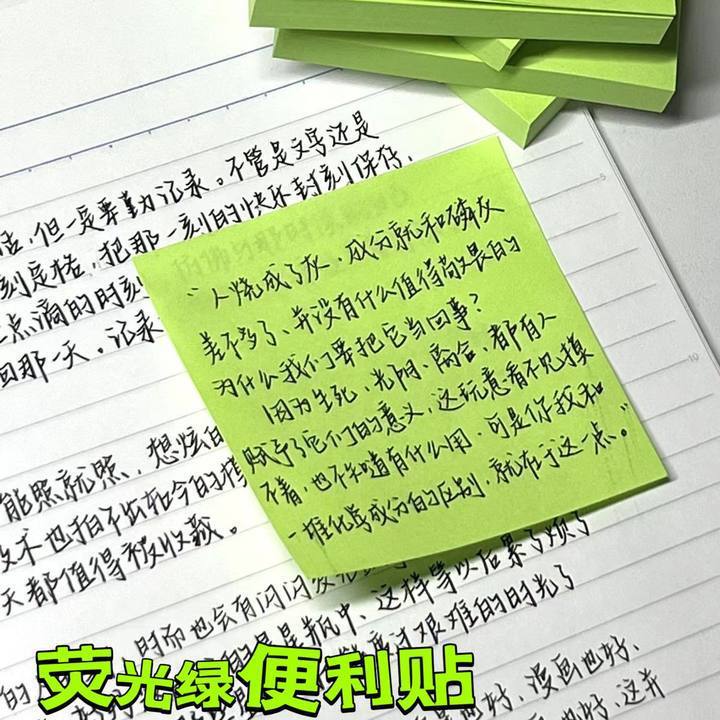 活，但一定要勤力记录。不管是文字还是
刻定格，把那一刻的快乐封刻保存，
点滴的时刻
回那一天。记录
“人烧成了灰，成分就和磷灰
差不多了、并没有什么值得敬畏的
为什么我们要把它当回事？
因为生死、光阴、离合、都有人
赋予了它们的意义，这玩意看不见摸
不着，也不知道有什么用，可是你我和
一堆化学成分的区别，就在于这一点。”
能照就照，想炫的
技术也拍不出如今的模
天都值得被收藏。
时而也会有闪闪发
瓶中、这样等以后累了烦了
艰难的时光了
的
漫画也好、
也好、这并
荧光绿便利贴
5
10